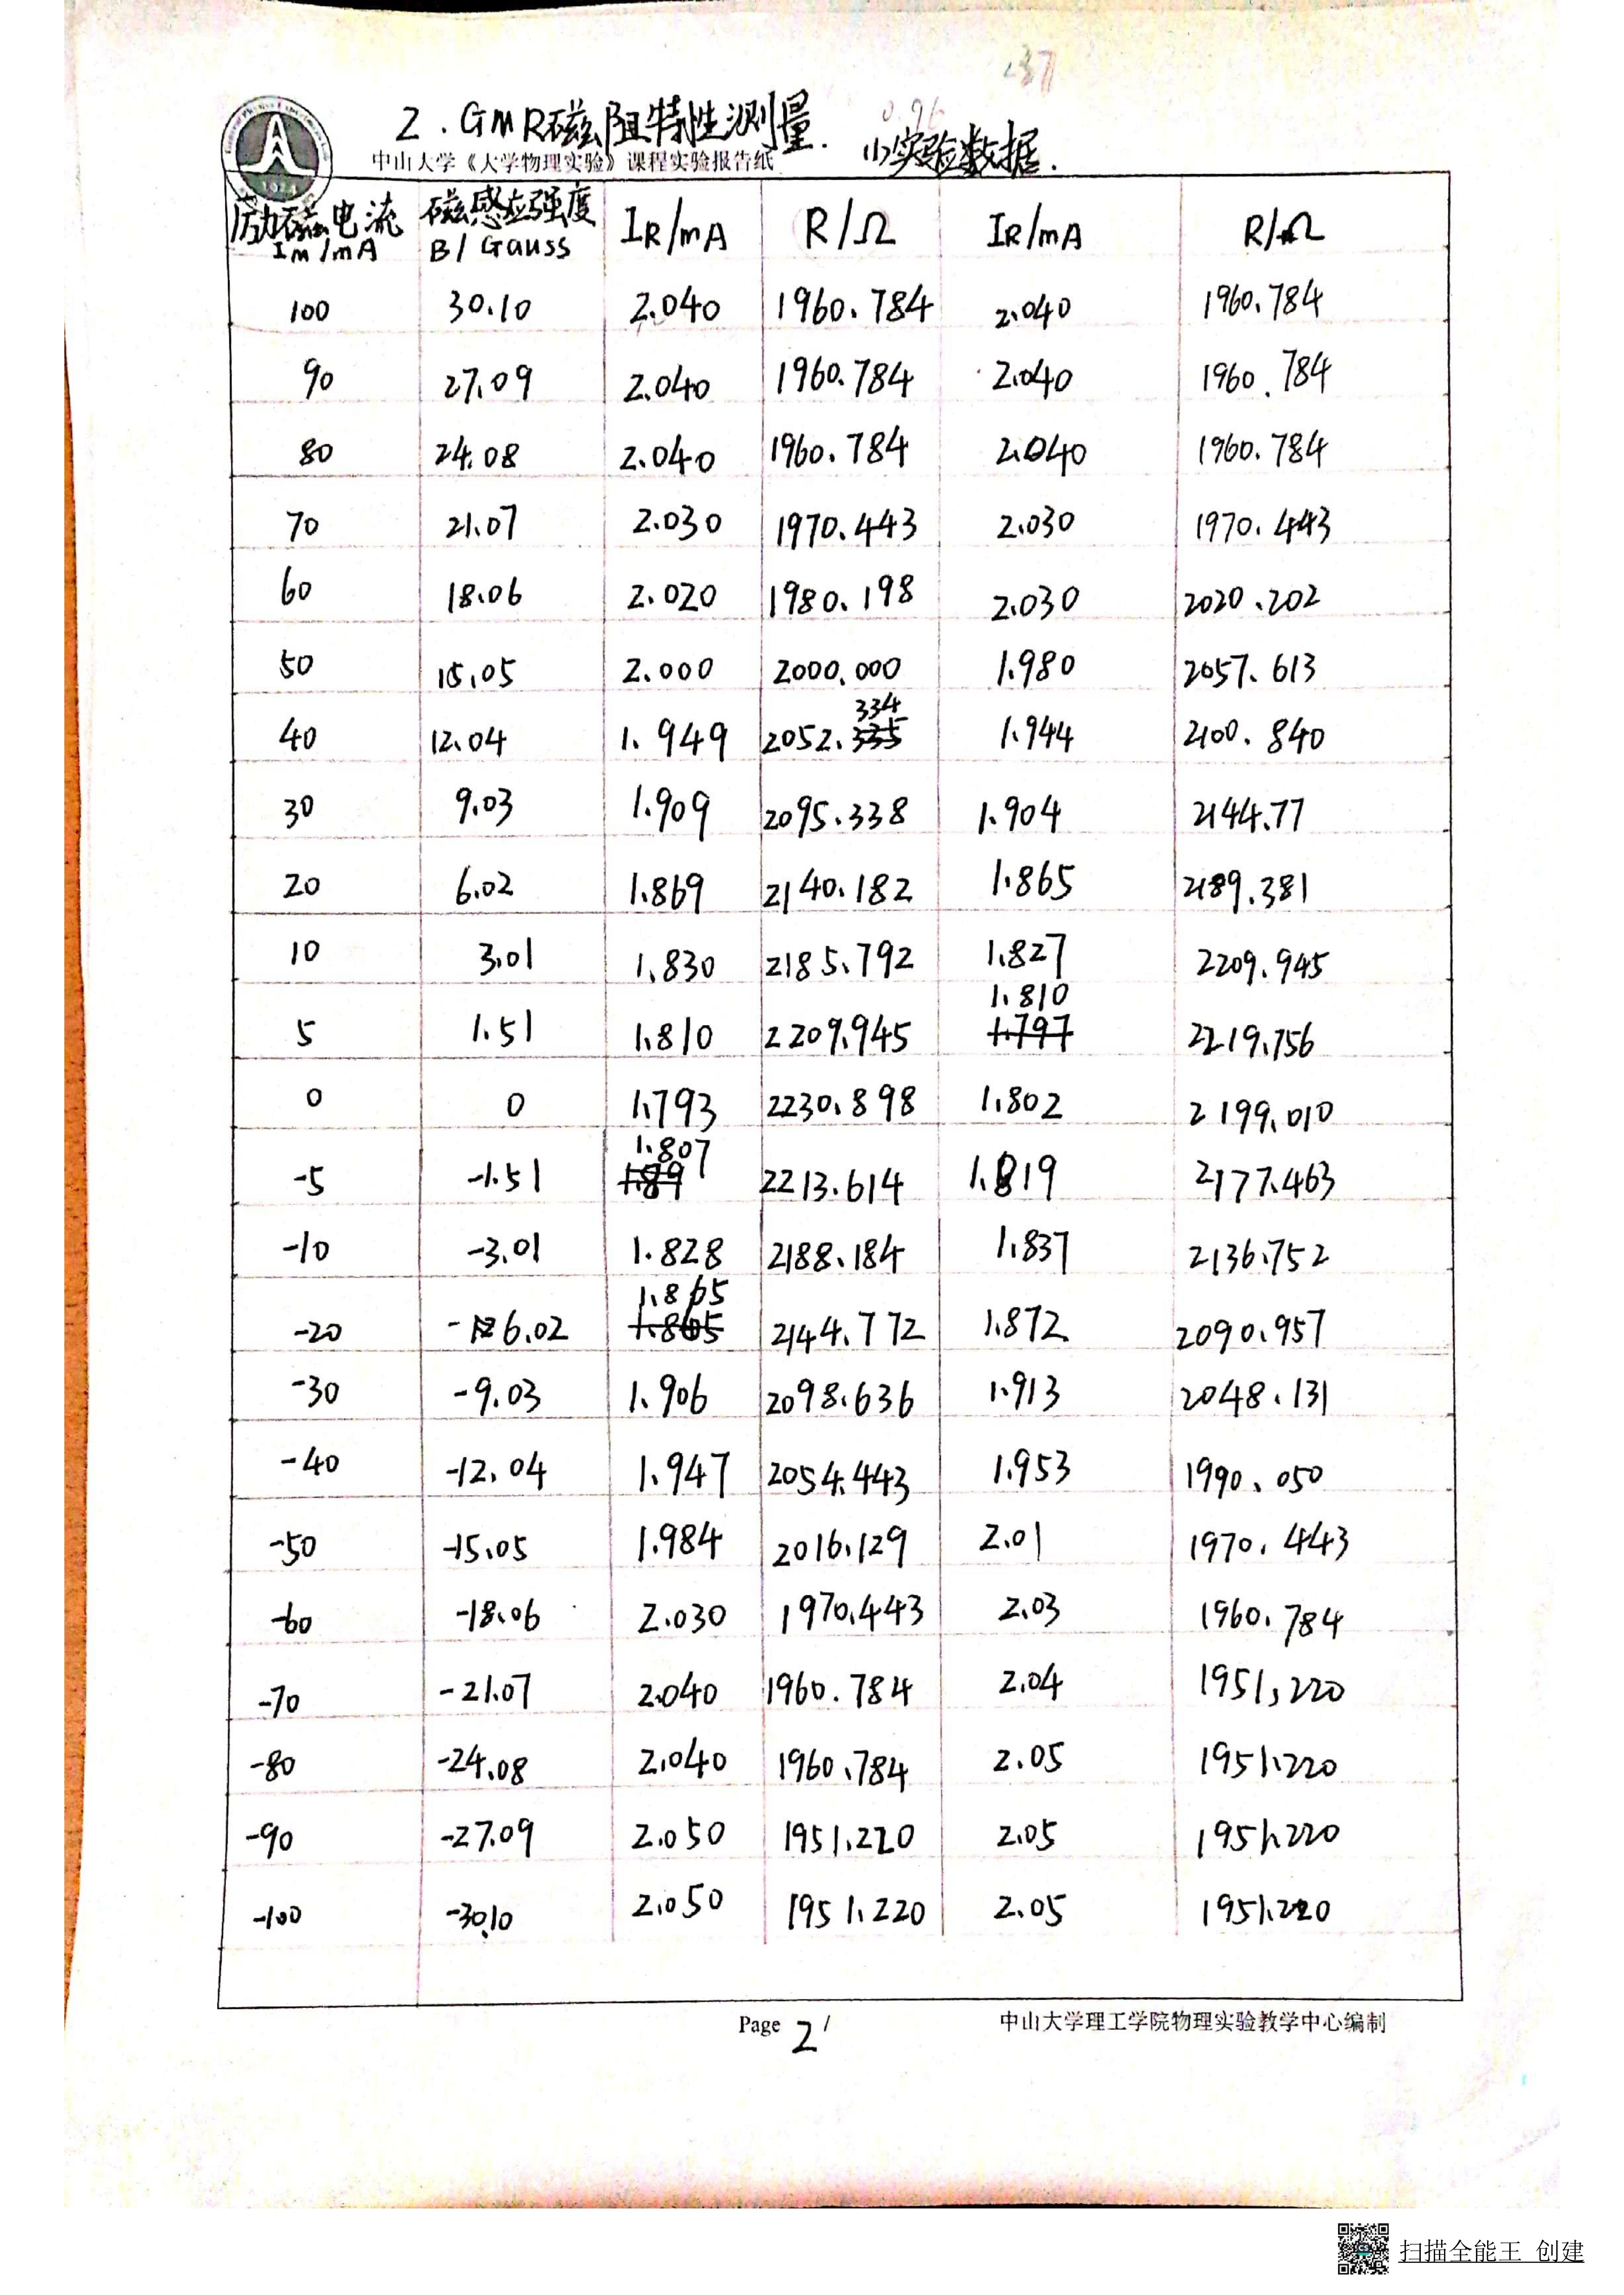 2.GMR磁阻特性测量.
(1)实验数据.
中山大学《大学物理实验》课程实验报告纸
励磁电流 IM/mA 磁感应强度 B/Gauss IR/mA R/Ω IR/mA R/Ω
100 30.10 2.040 1960.784 2.040 1960.784
90 27.09 2.040 1960.784 2.040 1960.784
80 24.08 2.040 1960.784 2.040 1960.784
70 21.07 2.030 1970.443 2.030 1970.443
60 18.06 2.020 1980.198 2.030 2020.202
50 15.05 2.000 2000.000 1.980 2057.613
40 12.04 1.949 2052.334 1.944 2100.840
30 9.03 1.909 2095.338 1.904 2144.77
20 6.02 1.869 2140.182 1.865 2189.381
10 3.01 1.830 2185.792 1.827 2209.945
5 1.51 1.810 2209.945 1.810 2219.756
0 0 1.793 2230.898 1.802 2199.010
-5 -1.51 1.807 2213.614 1.819 2177.463
-10 -3.01 1.828 2188.184 1.837 2136.752
-20 -6.02 1.865 2144.772 1.872 2090.957
-30 -9.03 1.906 2098.636 1.913 2048.131
-40 -12.04 1.947 2054.443 1.953 1990.050
-50 -15.05 1.984 2016.129 2.01 1970.443
-60 -18.06 2.030 1970.443 2.03 1960.784
-70 -21.07 2.040 1960.784 2.04 1951.220
-80 -24.08 2.040 1960.784 2.05 1951.220
-90 -27.09 2.050 1951.220 2.05 1951.220
-100 -30.10 2.050 1951.220 2.05 1951.220
Page 2 /
中山大学理工学院物理实验教学中心编制
扫描全能王 创建